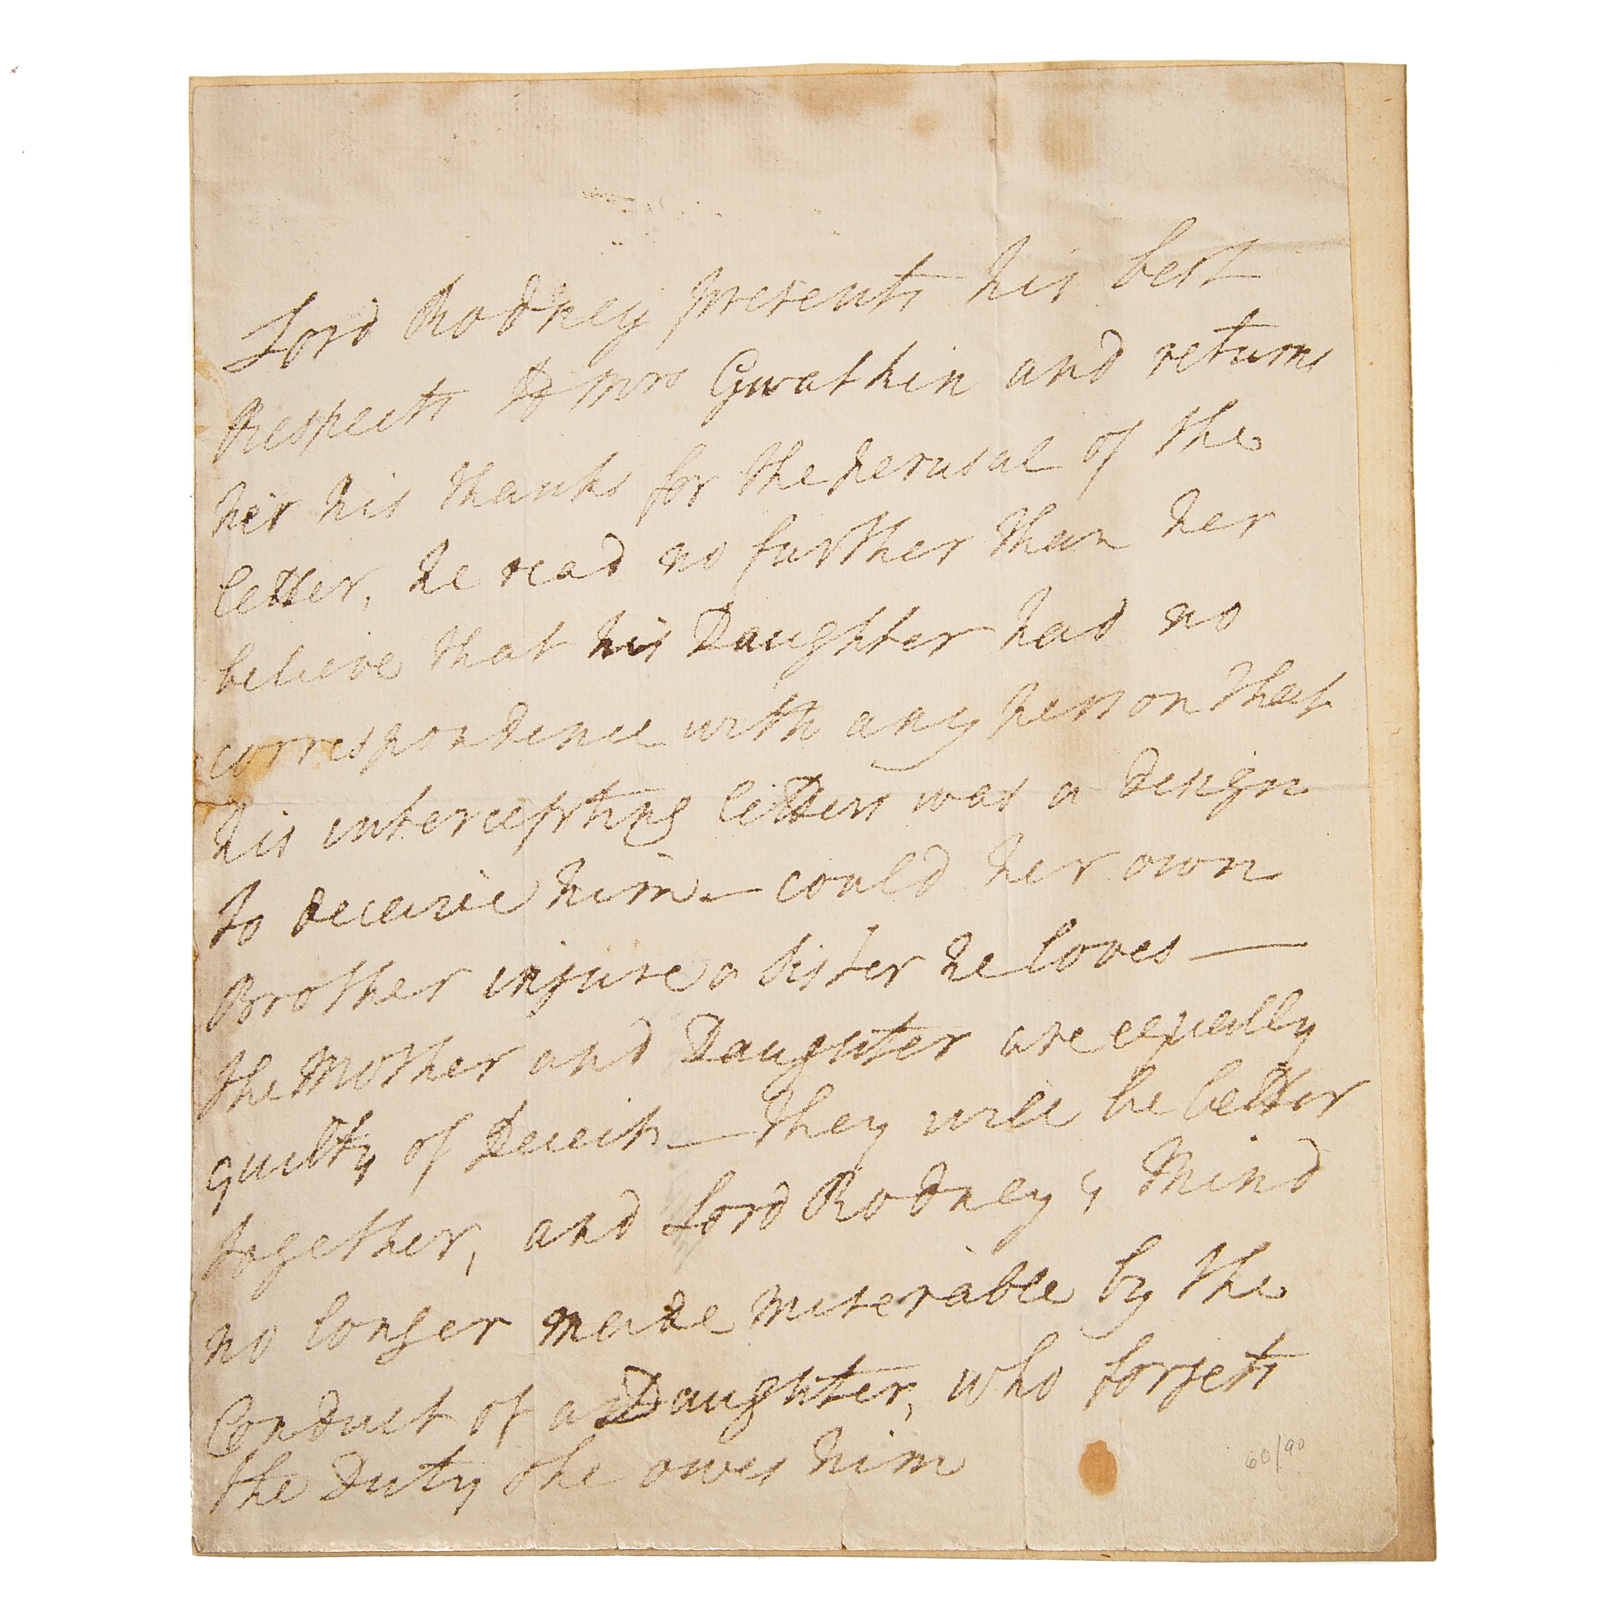 Lord Rodney presents his best
Respects to Mrs Gwatkin and returns
her his thanks for the perusal of the
letter, he read no further than her
believe that his Daughter had no
correspondence with any person that
his intercepting letters was a design
to deceive him — could her own
Brother injure a Sister he loves —
the Mother and Daughter are equally
guilty of Deceit — they will be better
together, and Lord Rodney's Mind
no longer made miserable by the
Conduct of a Daughter, who forgets
the Duty she owes him
60/90